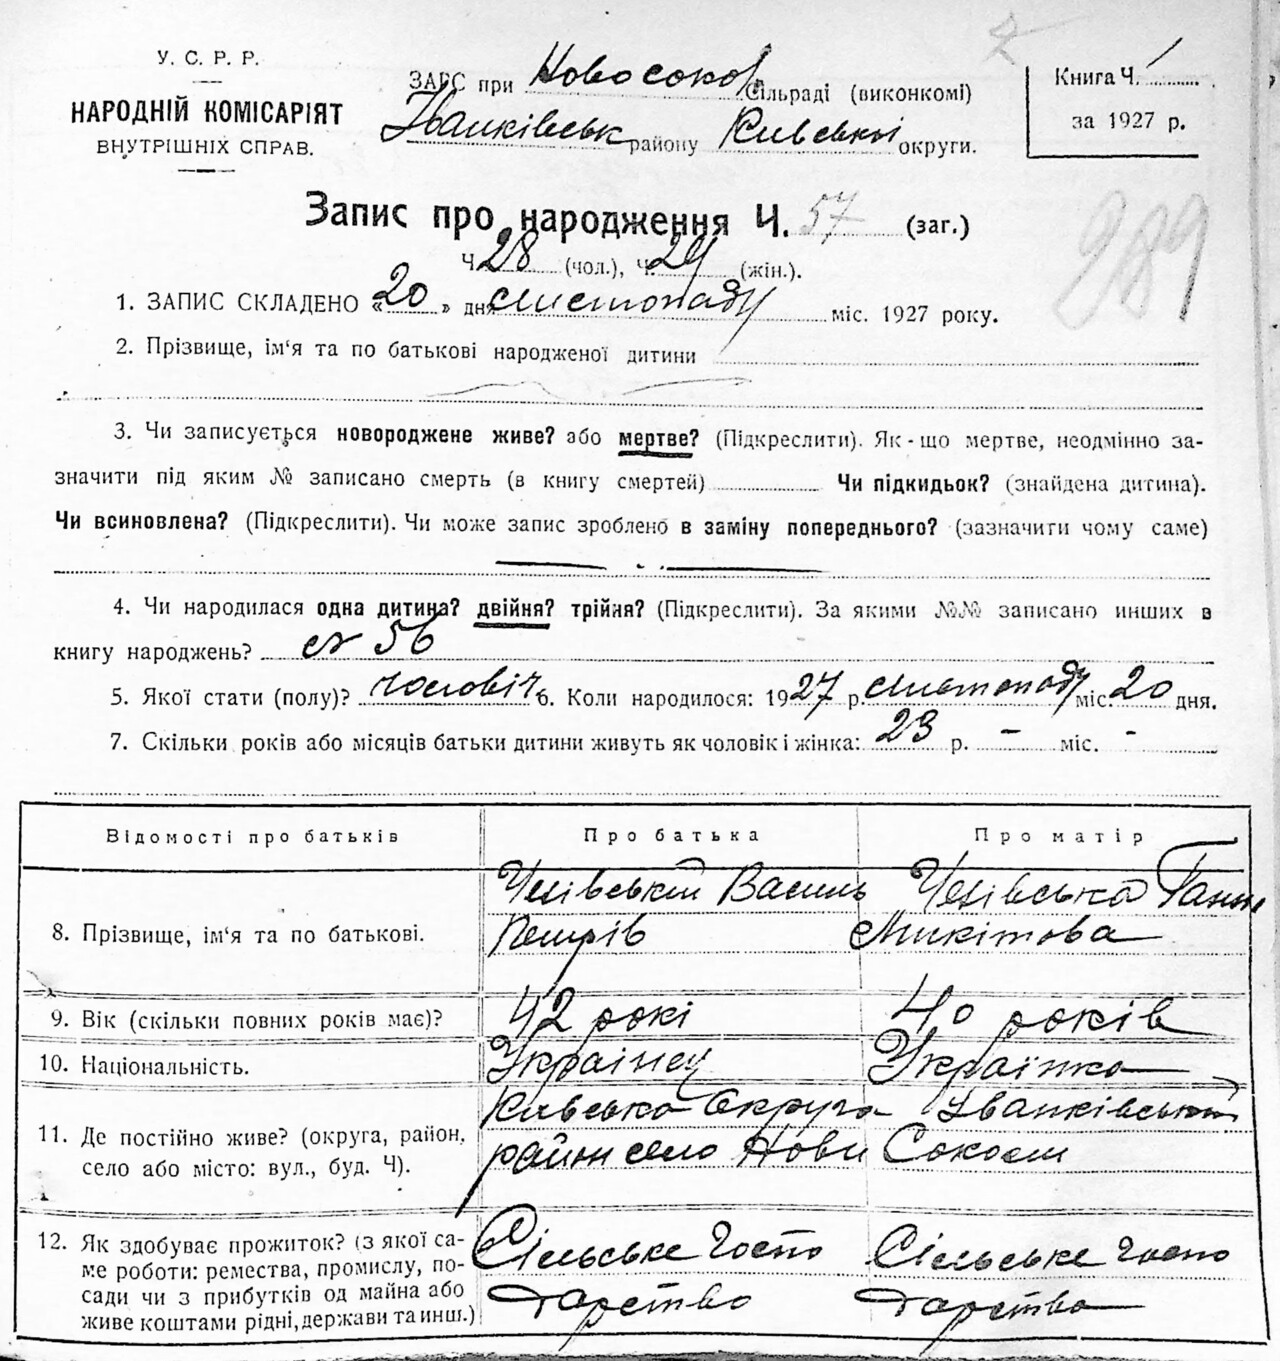 У. С. Р. Р.
НАРОДНІЙ КОМІСАРІЯТ
ВНУТРІШНІХ СПРАВ.
ЗАГС при Новосокол. Сільраді (виконкомі)
Іванківськ району Київської округи.
Книга Ч. 1
за 1927 р.
289
Запис про народження Ч. 57 (заг.)
Ч. 28 (чол.), Ч. 29 (жін.).
1. ЗАПИС СКЛАДЕНО «20» дня листопаду міс. 1927 року.
2. Прізвище, ім'я та по батькові народженої дитини
3. Чи записується новороджене живе? або мертве? (Підкреслити). Як-що мертве, неодмінно за-
значити під яким № записано смерть (в книгу смертей) Чи підкидьок? (знайдена дитина).
Чи всиновлена? (Підкреслити). Чи може запис зроблено в заміну попереднього? (зазначити чому саме)
4. Чи народилася одна дитина? двійня? трійня? (Підкреслити). За якими №№ записано инших в
книгу народжень? № 56
5. Якої стати (полу)? чоловіч. 6. Коли народилося: 1927 р. листопаду міс. 20 дня.
7. Скільки років або місяців батьки дитини живуть як чоловік і жінка: 23 р. — міс. -
Відомості про батьків Про батька Про матір
8. Прізвище, ім'я та по батькові.
Василь
Петрів
Ганна
Микітова
9. Вік (скільки повних років має)? 42 рокі 40 років
10. Національність. Українец Українка
11. Де постійно живе? (округа, район,
село або місто: вул., буд. Ч).
Київська Округа Іванківський
район село Нови Соколи
12. Як здобуває прожиток? (з якої са-
ме роботи: ремества, промислу, по-
сади чи з прибутків од майна або
живе коштами рідні, держави та инш.)
Сільське госпо
дарство
Сільське госпо
дарство